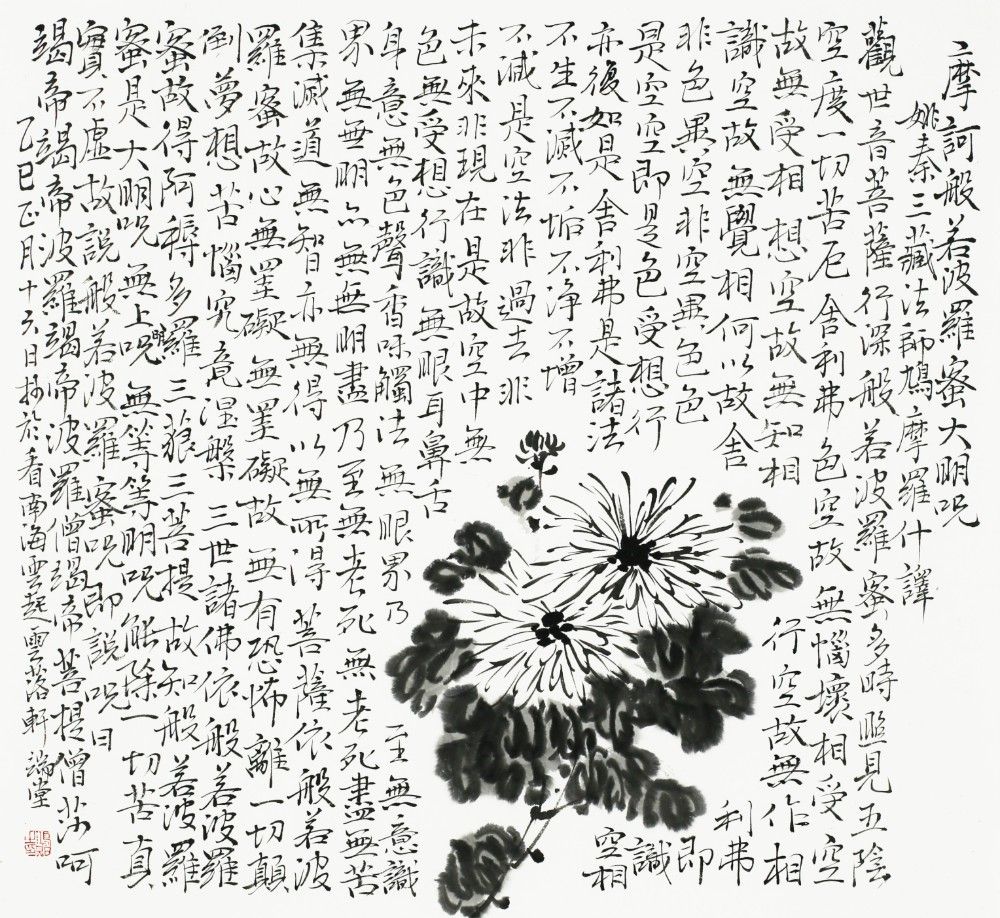 摩訶般若波羅蜜大明呪
姚秦三藏法師鳩摩羅什譯
觀世音菩薩行深般若波羅蜜多時照見五陰
空度一切苦厄舍利弗色空故無惱壞相受空
故無受相想空故無知相行空故無作相
識空故無覺相何以故舍利弗
非色異空非空異色色即
是空空即是色受想行識
亦復如是舍利弗是諸法空相
不生不滅不垢不淨不增
不減是空法非過去非
未來非現在是故空中無
色無受想行識無眼耳鼻舌
身意無色聲香味觸法無眼界乃至無意識
界無無明亦無無明盡乃至無老死無老死盡無苦
集滅道無智亦無得以無所得菩薩依般若波
羅蜜故心無罣礙無罣礙故無有恐怖離一切顛
倒夢想苦惱究竟涅槃三世諸佛依般若波羅
蜜故得阿耨多羅三藐三菩提故知般若波羅
蜜是大明呪無上明呪無等等明呪能除一切苦真
實不虛故說般若波羅蜜呪即說呪曰
竭帝竭帝波羅竭帝波羅僧竭帝菩提僧莎呵
乙巳正月十六日抄於看南海雲起雲落軒端堂